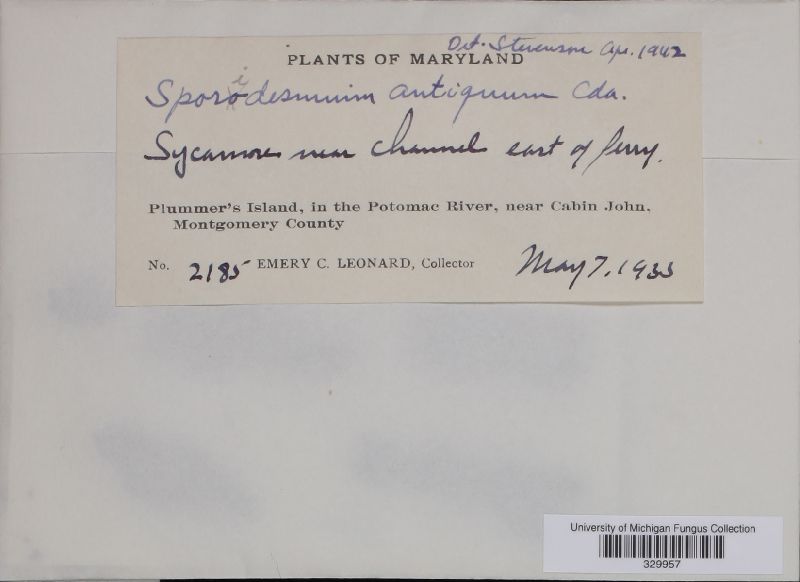 Det. Stevenson Apr. 1942
PLANTS OF MARYLAND
Sporidesmium antiquum Cda.
Sycamore near channel east of ferry.
Plummer's Island, in the Potomac River, near Cabin John,
Montgomery County
No. 2185 EMERY C. LEONARD, Collector May 7, 1933
University of Michigan Fungus Collection
329957